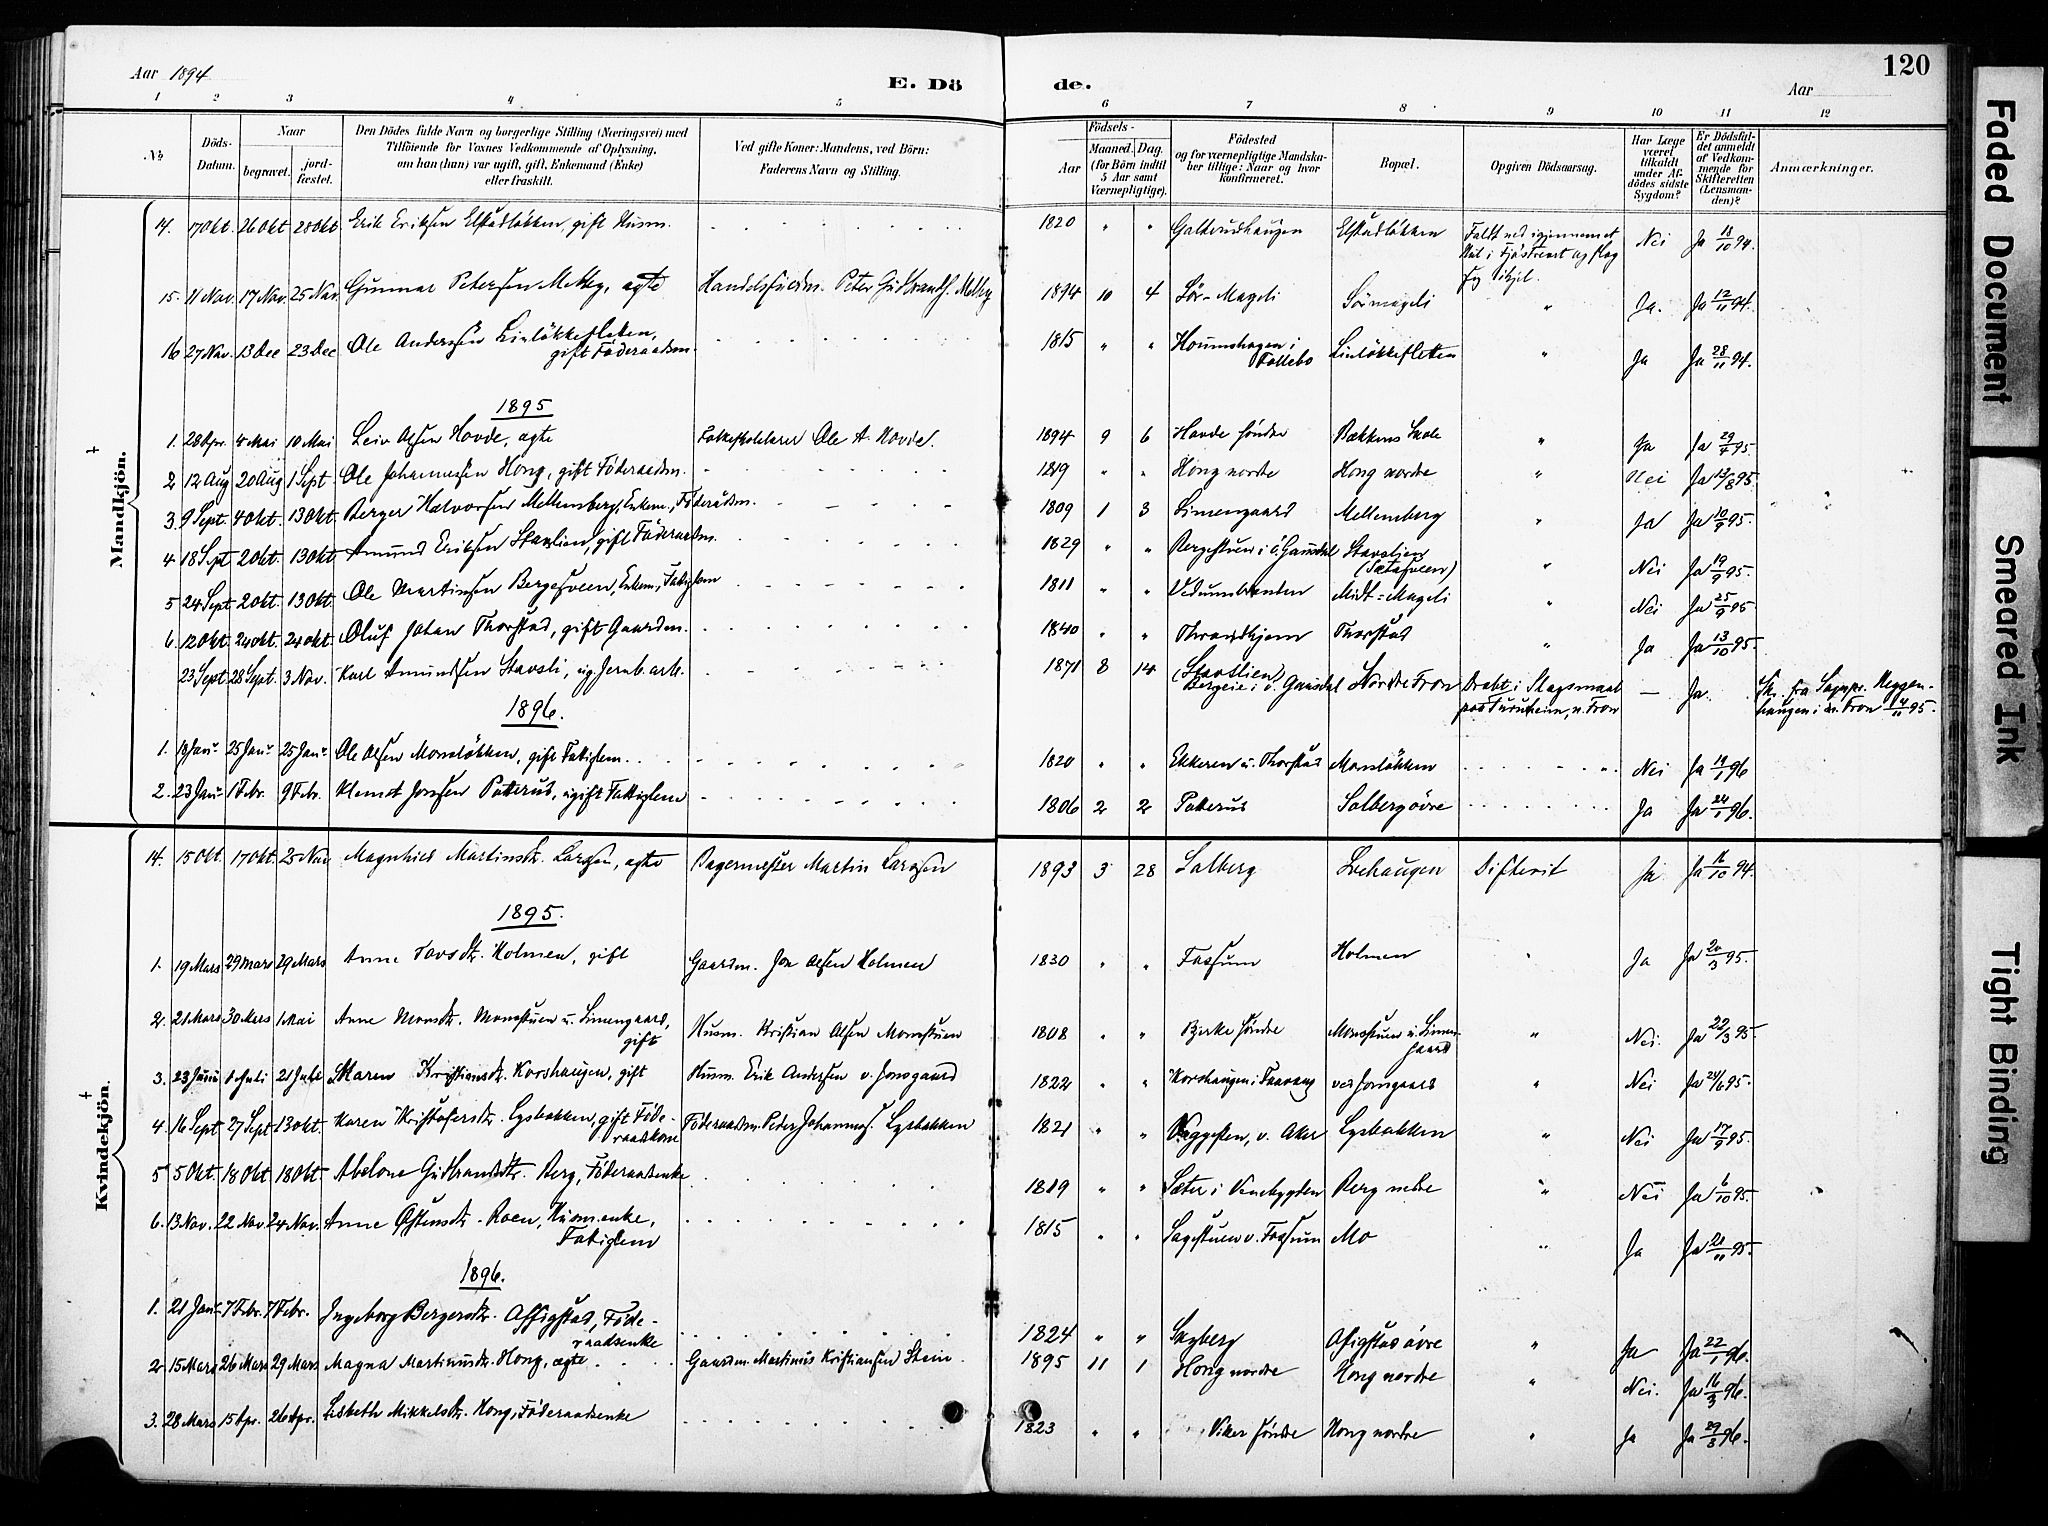 Aar 1894
E. Dö
de.
Aar
120
1 2 3 4 5 6 7 8 9 10 11 12
No
Döds-Datum.
Naar
begravet.
jordfæstet.
Den Dödes fulde Navn og borgerlige Stilling (Næringsvei) med
Tilföiende for Voxnes Vedkommende af Oplysning,
om han (hun) var ugift, gift, Enkemand (Enke)
eller fraskilt.
Ved gifte Koner: Mandens, ved Börn:
Faderens Navn og Stilling.
Födsels-
Aar
Maaned. Dag.
(for Börn indtil
5 Aar samt
Værnepligtige).
Födested
og for værnepligtige Mandskaber tillige: Naar og hvor
konfirmeret.
(Bopæl.
Opgiven Dödsaarsag.
Har Læge
været
tilkaldt
under Afdödes sidste
Sygdom?
Er Dödsfaldet anmeldt
af Vedkommende for
Skifteretten
(Lensmanden)?
Anmærkninger.
Mandkjön.
14. 17 Okt. 26 Okt 28 Okt Erik Eriksen Elstadløkken, gift Husm. 1820 " " Galterudhaugen Elstadløkken Faldt ned igjennemet Nei Ja 18/10 94.
15. 11 Nov. 17 Nov. 25 Nov. Gunnar Petersen Melby, ægte Peter Gudbrands. Melby 1894 10 4 Sör-Mageli Sörmageli " Ja. Ja 12/11 94.
16 27 Nov. 13 Dec 23 Dec Ole Andersen Linløkkefletten,
gift Föderaadsm. 1815 " " i Follebo Linløkkefletten " Ja Ja 28/11 94.
1895
1. 28 Apr. 8 Mai 10 Mai Leiv Olsen Hovde, ægte Folkeskolelærer Ole A. Hovde. 1894 9 6 Hovde söndre Bækkens Skole " Ja Ja 29/4 95.
2 12 Aug 20 Aug 1 Sept Ole Johannessen Hong, gift Föderaadsm. 1819 " " Hong nordre Hong nordre " Nei Ja 13/8 95.
3. 9 Sept. 4 Okt. 13 Okt. Berger Halvorsen Mellemberg, Enkem., Föderaadsm. 1809 1 3 Simengaard Mellemberg " Ja Ja 10/9 95.
4 18 Sept 2 Okt. 13 Okt Amund Eriksen Stavslien, gift Föderaadsm. 1829 " " Bergestuen i ö. Gausdal Stavslien " Nei Ja 19/9 95.
5 24 Sept 2 Okt. 13 Okt. Ole Martinsen Bergesveen, Enkem., Fattiglem 1811 " " Midt-Mageli " Nei Ja 25/9 95
6. 12 Okt. 24 Okt. 24 Okt. Oluf Johan Thorstad, gift Gaardm. 1840 " " Throndhjem Thorstad " Ja Ja 13/10 95.
23 Sept 28 Sept. 3 Nov. Karl Amundsen Stavsli, ug. Jernb. arb. 1871 8 14 (Stavslien)
Bergeie i ö. Gausdal Nordre Fron Dræbt i Slagsmaal
paa n. Fron — Ja. Sk. fra Sognepr. Heggenhaugen i n. Fron 4/11 95.
1896.
1. 18 Janr. 25 Janr 25 Janr Ole Olsen Monsløkken, gift Fattiglem. 1820 " " Ekkeren u. Thorstad Monsløkken " Nei Ja 19/1 96
2. 23 Janr 1 Febr. 9 Febr. Klemet Jonsen Pokerud, ugift Fattiglem 1806 2 2 Pokerud Solberg övre Ja Ja 24/1 96.
Kvindekjön.
14. 15 Okt. 17 Okt. 25 Nov Magnhild Martinsdtr. Larsen, ægte Bagermester Martin Larssen 1893 3 28 Solberg Lochaugen Difterit Ja Ja 16/10 94.
1895.
1. 19 Mars 29 Mars 29 Mars Anne Tovsdtr. Holmen, gift Gaardm. Jon Olsen Holmen 1830 " " Fossum Holmen " Ja Ja 20/3 95.
2. 21 Mars 30 Mars 1 Mai Anne Monsdtr. Monsstuen u. Simengaard,
gift Husm. Kristian Olsen Monsstuen 1808 " " Birke söndre Monsstuen u. Simengaard " Nei. Ja 22/3 95.
3. 23 Juni 1 Juli 21 Juli Maren Kristiansdtr. Korshaugen, gift Husm. Erik Andersen v. Jonsgaard 1822 " " Korshaugen i Faavang ved Jonsgaard " Nei Ja 24/6 95.
4. 16 Sept 27 Sept 13 Okt. Karen Kristofersdtr. Lysbakken, gift Föderaadskone Föderaadsm. Peder Johannes. Lysbakken 1821 " " v. Aker Lysbakken " Nei Ja 17/9 95.
5 5 Okt. 18 Okt 18 Okt. Abelone Gudbrandsdtr. Berg, Föderaadsenke 1819 " " Sæter i Venebygden Berg nedre " Nei Ja 6/10 95.
6. 13 Nov. 22 Nov. 24 Nov. Anne Östensdtr. Roen, Husm.enke,
Fattiglem 1815 " " Sagestuen v. Fossum Mo " Ja Ja 20/11 95.
1896.
1. 21 Janr. 7 Febr. 7 Febr. Ingeborg Bergersdtr. Affigstad, Föderaadsenke 1824 " " Skyberg Afigstad övre " Ja Ja 22/1 96.
2 15 Mars 26 Mars 29 Mars Magna Martinusdtr. Hong, ægte Gaardm. Martinus Kristiansen Stein 1895 11 1 Hong nordre Hong nordre " Nei. Ja 16/3 96.
3. 28 Mars 15 Apr. 26 Apr. Lisbeth Mikkelsdtr. Hong, Föderaadsenke 1823 " " Viker söndre Hong nordre " Ja Ja 29/3 96.
Faded Document
Smeared Ink
Tight Binding